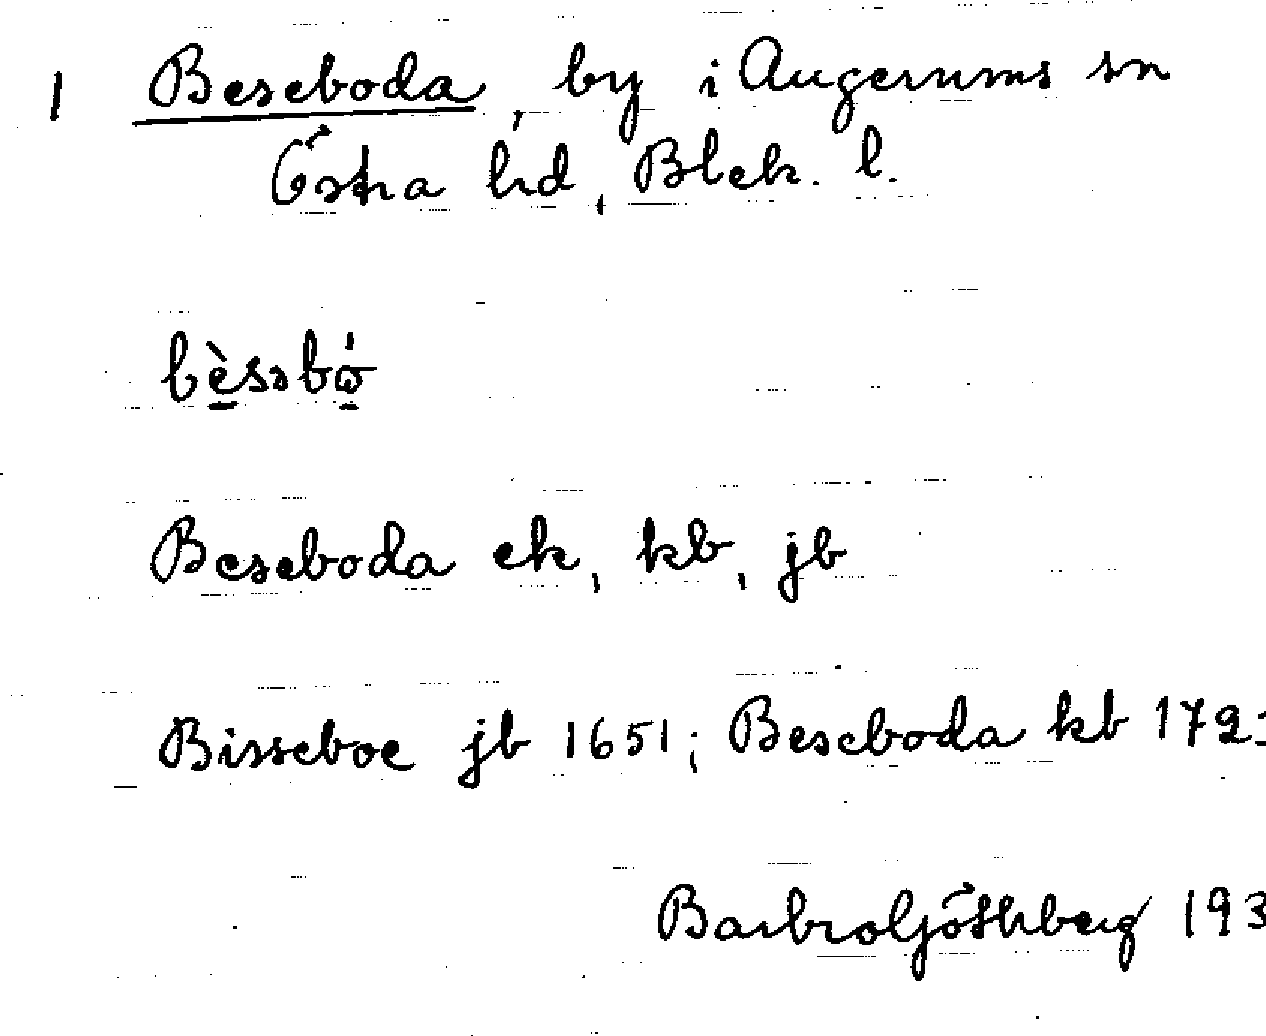 1 Beseboda, by i Augerums sn
Östra hd, Blek. l.
Beseboda ek, kb, jb
Bisseboe jb 1651; Beseboda kb 172
Barbro Ljöthberg 193